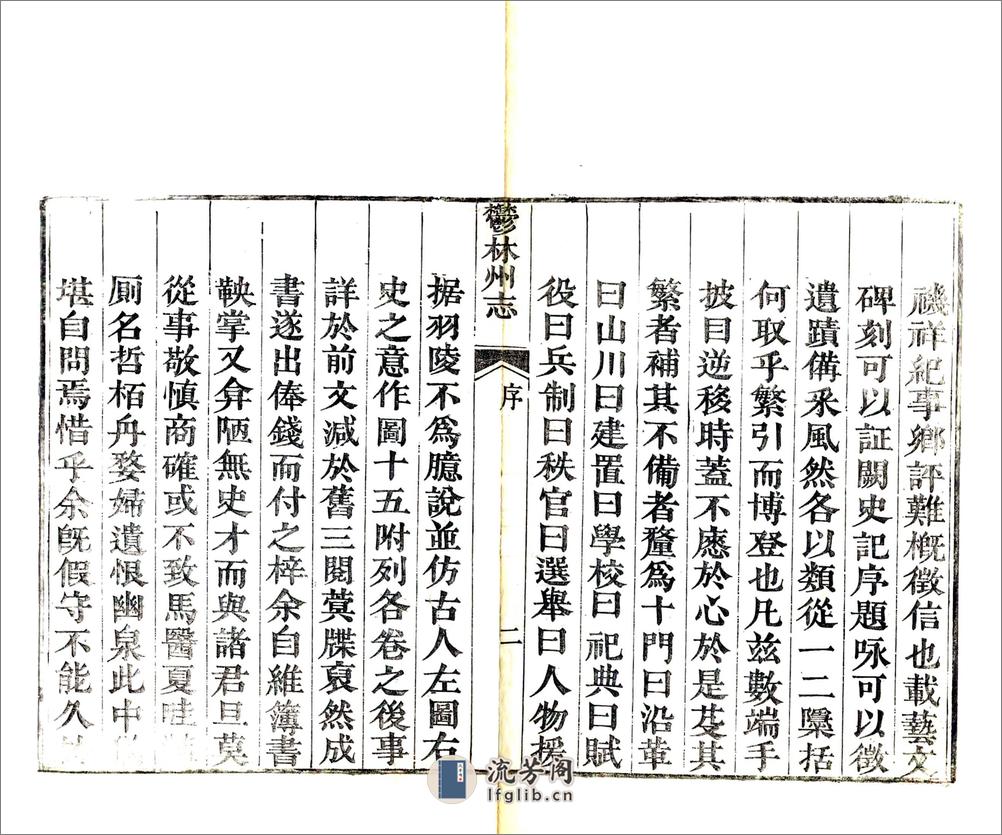 禨祥紀事鄉評難概徵信也載藝文
碑刻可以証闕史記序題咏可以徵
遺蹟備采風然各以類從一二檃括
何取乎繁引而博登也凡玆數端手
披目逆移時蓋不慿於心於是芟其
繁者補其不備者釐爲十門曰沿革
曰山川曰建置曰學校曰祀典曰賦
役曰兵制曰秩官曰選舉曰人物援
鬱林州志
序
二
据羽陵不爲臆說並仿古人左圖右
史之意作圖十五附列各卷之後事
詳於前文減於舊三閱蓂牒裒然成
書遂出俸錢而付之梓余自維簿書
鞅掌又弇陋無史才而與諸君旦莫
從事敬慎商確或不致馬醫夏畦
厠名哲栢舟嫠婦遺恨幽泉此中
堪自問焉惜乎余旣假守不能久
流芳阁
lfglib.cn